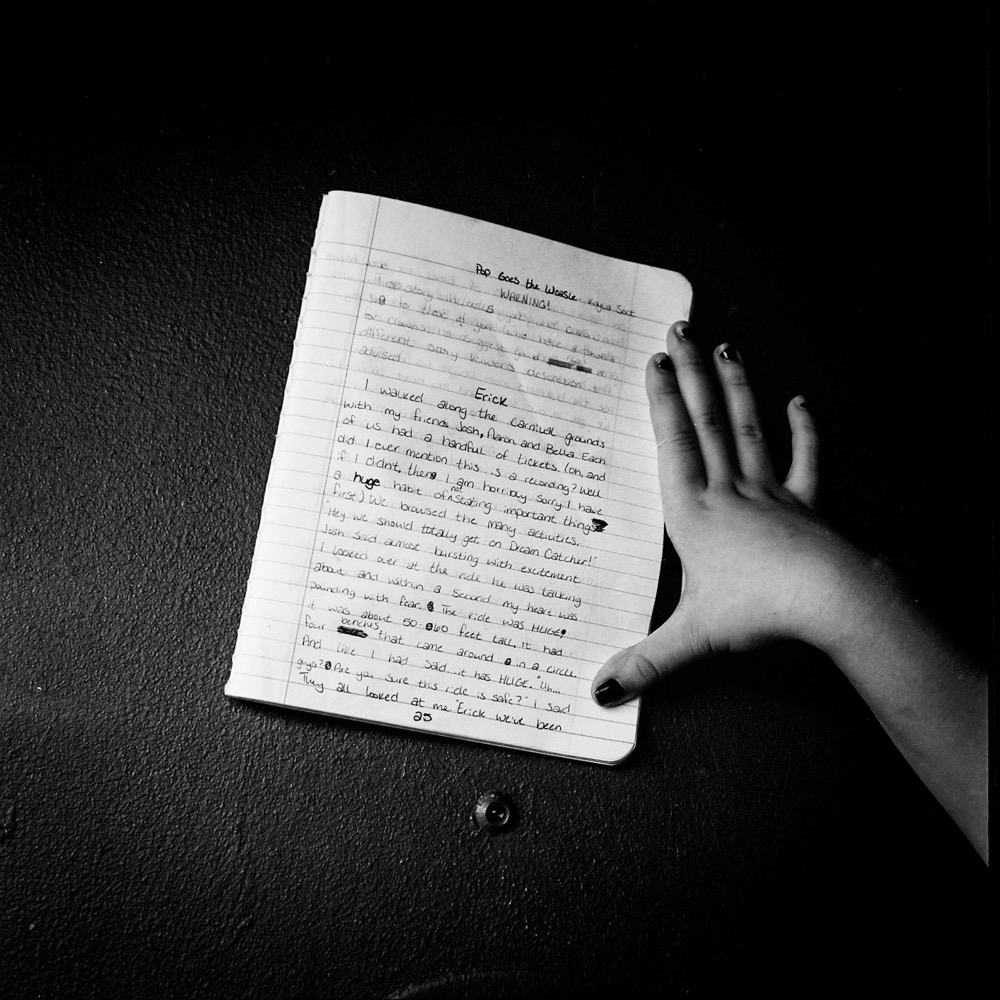 Pop Goes the Weasle Kayla Sect
WARNING!
this story includes
so for those of you who have a phobia
for clowns I suggest you read a
different story viewers descretion
advised
Erick
I walked along the carnival grounds
with my friends Josh, Aaron, and Bella. Each
of us had a handful of tickets. (oh, and
did I ever mention this is a recording? Well
if I didn't, then I am horribly sorry. I have
a huge habit of not stating important things
first.) We browsed the many activities.
"Hey we should totally get on Dream Catcher!"
Josh said almost bursting with excitement.
I looked over at the ride he was talking
about and within a second my heart was
pounding with fear. The ride was HUGE!
it was about 50-60 feet tall, it had
four benches that came around in a circle.
And like I had said....it was HUGE. "Uh...
guys? Are you sure this ride is safe?" I said
They all looked at me. "Erick we've been
25